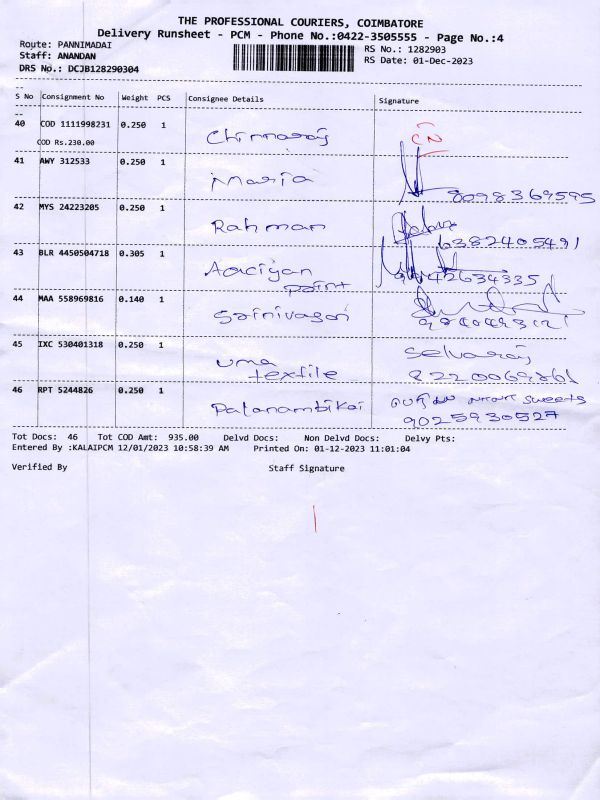 THE PROFESSIONAL COURIERS, COIMBATORE
Delivery Runsheet - PCM - Phone No.:0422-3505555 - Page No.:4
Route: PANNIMADAI
RS No.: 1282903
Staff: ANANDAN
RS Date: 01-Dec-2023
DRS No.: DCJB128290304
S No Consignment No Weight PCS Consignee Details Signature
40 COD 1111998231 0.250 1 Chinnaraj CN
COD Rs.230.00
41 AWY 312533 0.250 1 Maria
8098369595
42 MYS 24223205 0.250 1 Rahman
6382405491
43 BLR 4450504718 0.305 1 Aaciyan
point
44 MAA 558969816 0.140 1 Srinivasan
45 IXC 530401318 0.250 1 uma Selvaraj
textile 8220069861
46 RPT 5244826 0.250 1 Palanambikai sweets
9025930527
Tot Docs: 46 Tot COD Amt: 935.00 Delvd Docs: Non Delvd Docs: Delvy Pts:
Entered By :KALAIPCM 12/01/2023 10:58:39 AM Printed On: 01-12-2023 11:01:04
Verified By Staff Signature